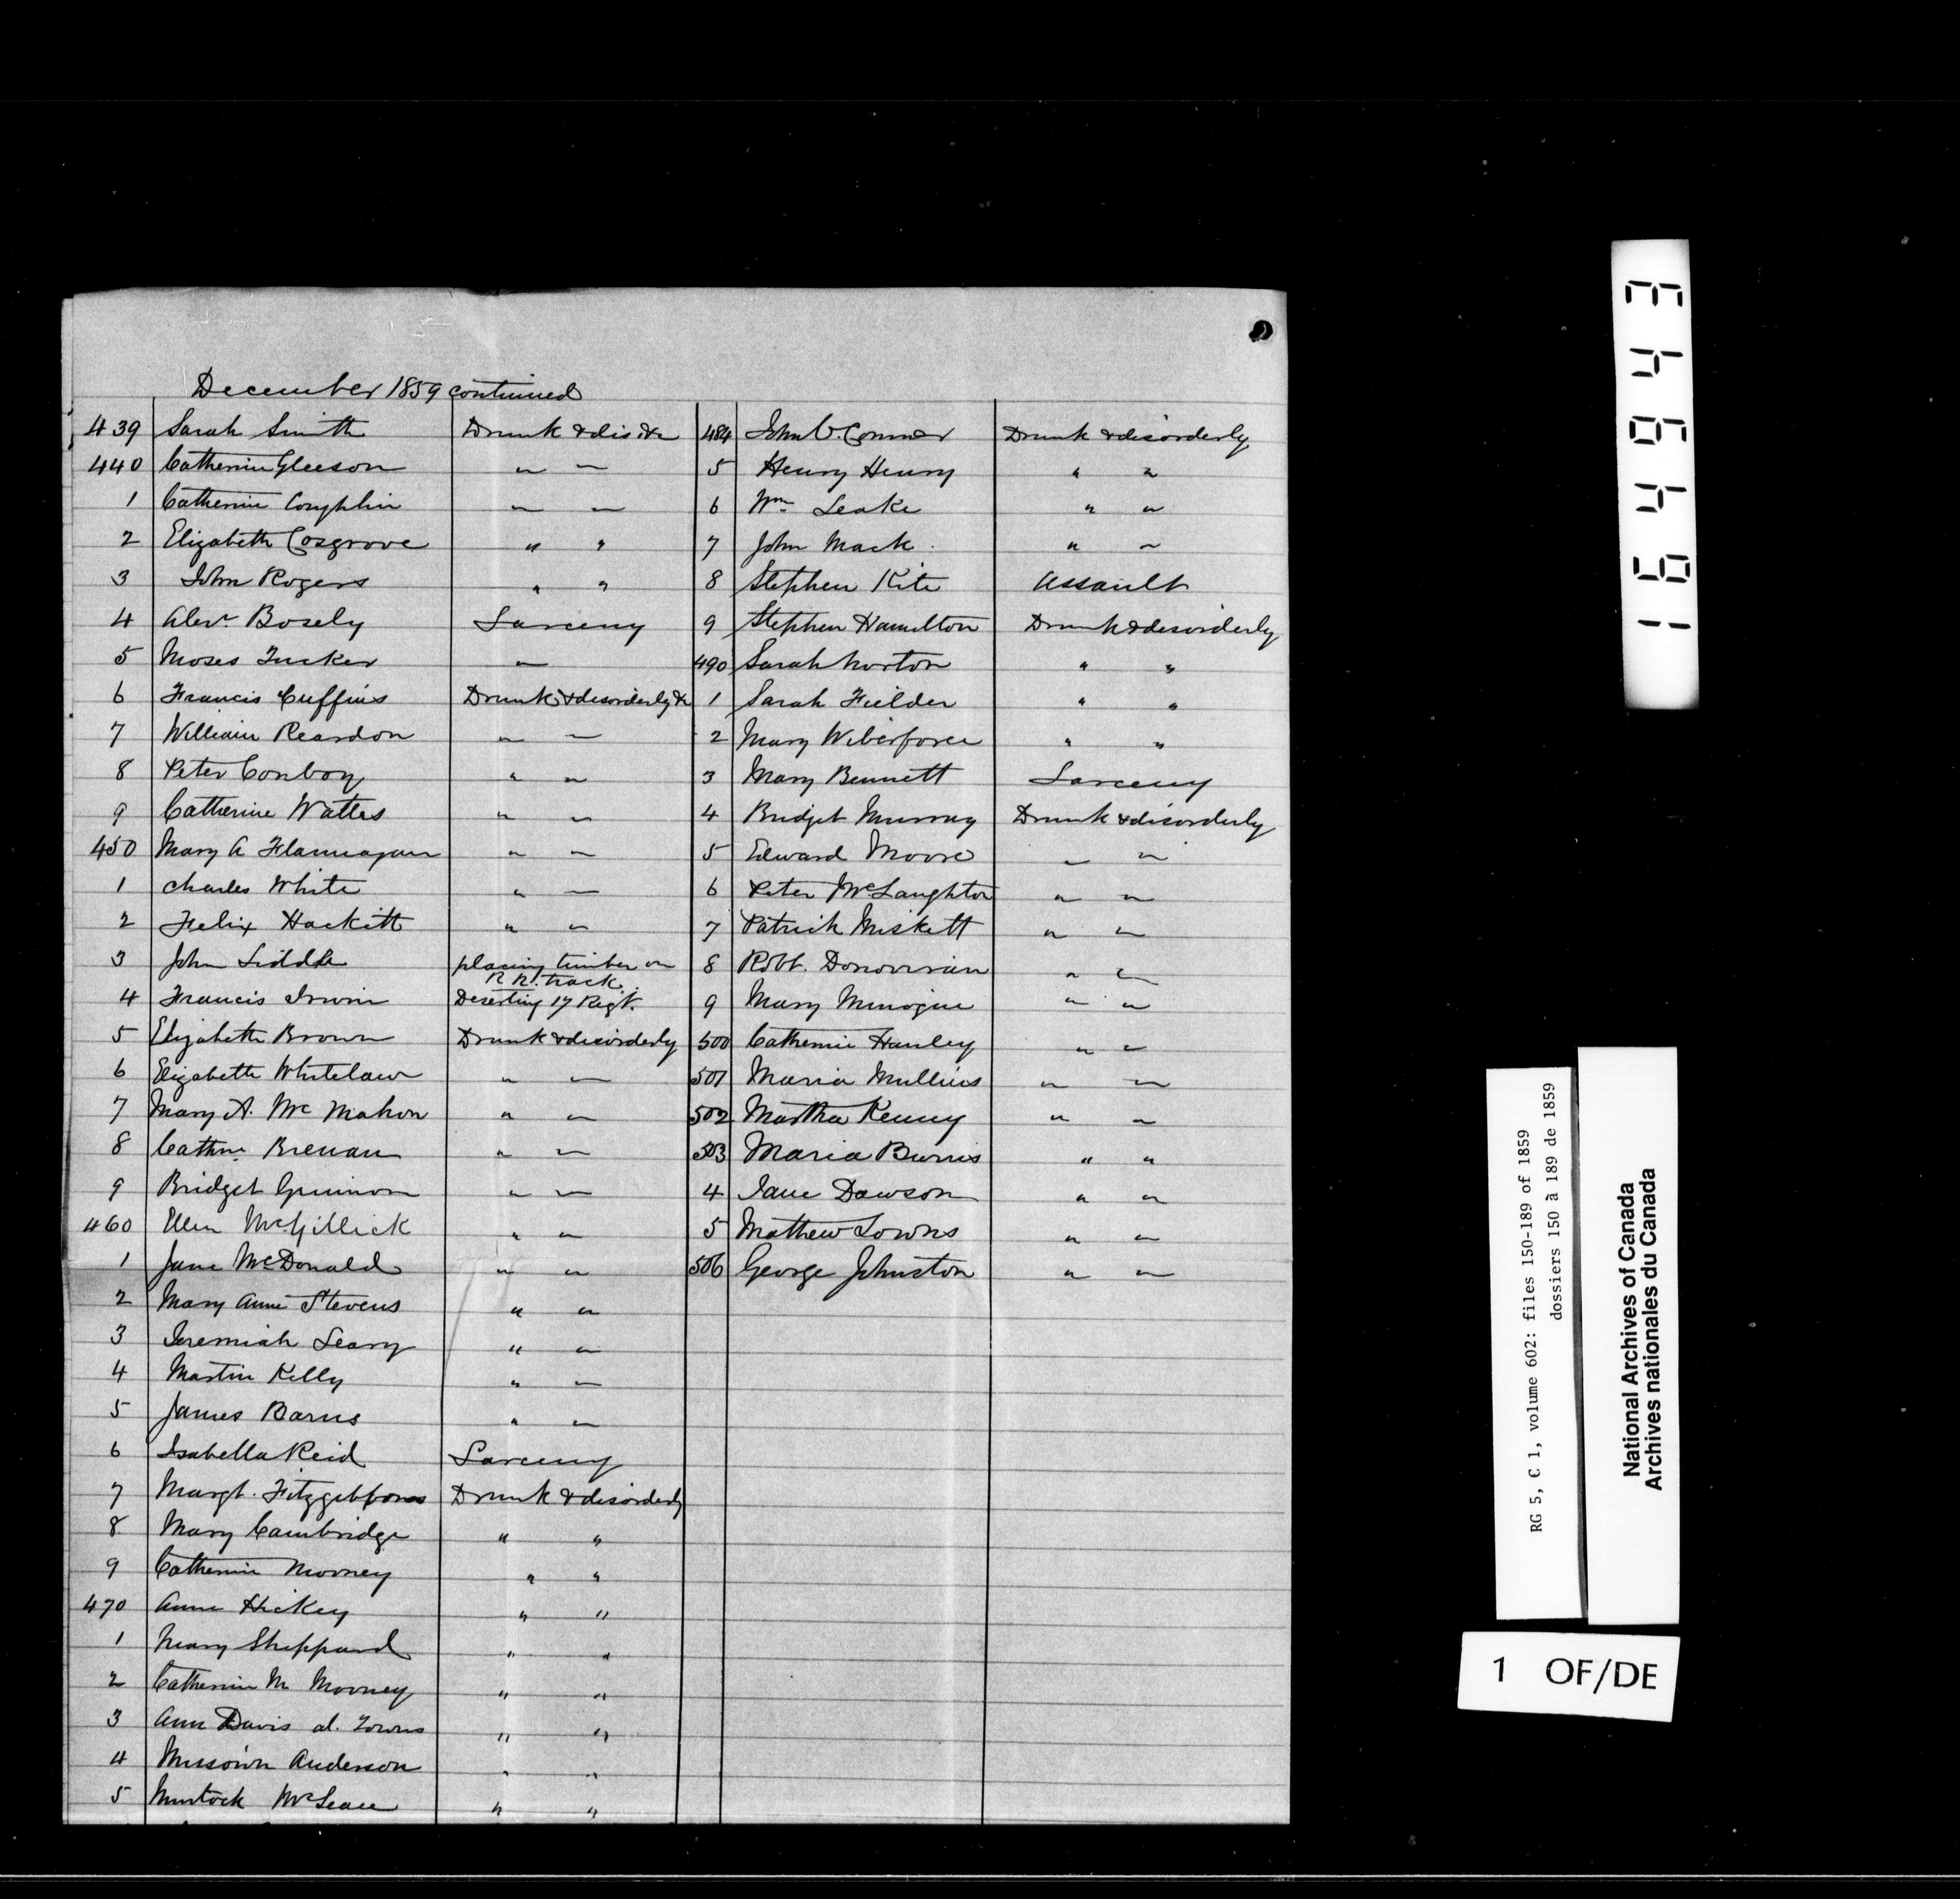 December 1859 continued
439 Sarah Smith Drunk & dis &c
440 Catherine Gleeson " "
1 Catherine Coughlin " "
2 Elizabeth Cosgrove " "
3 John Rogers " "
4 Alexr. Bosely Larceny
5 Moses Tucker "
6 Francis Cuffins Drunk & disorderly &c
7 William Reardon " "
8 Peter Conboy " "
9 Catherine Watters " "
450 Mary A Flannagan " "
1 Charles White " "
2 Felix Hackett " "
3 John Liddle placing timber on
R R. track
4 Francis Irwin Deserting 17 Regt.
5 Elizabeth Brown Drunk & disorderly
6 Elizabeth Whitelaw " "
7 Mary A. McMahon " "
8 Cathne. Brenan " "
9 Bridget " "
460 Ellen McGillick " "
1 Jane McDonald " "
2 Mary Anne Stevens " "
3 Jeremiah Leary " "
4 Martin Kelly " "
5 James Barns " "
6 Isabella Reid Larceny
7 Margt. Fitzgibbons Drunk & disorderly
8 Mary Cambridge " "
9 Catherine Mooney " "
470 Anne Hickey " "
1 Mary Sheppard " "
2 Catherine M Mooney " "
3 Ann Davis al. Towns " "
4 Anderson " "
5 Murtock McLean " "
484 John O. Connor Drunk & disorderly
5 Henry Henry " "
6 Wm Leake " "
7 John Mack. " "
8 Stephen Kite Assault
9 Stephen Hamilton Drunk & disorderly
490 Sarah Norton " "
1 Sarah Fielder " "
2 Mary Wiberforce " "
3 Mary Bennett Larceny
4 Bridget Murray Drunk & disorderly
5 Edward Moore " "
6 Peter McLaughton " "
7 Patrick Miskett " "
8 Robt. " "
9 Mary Minogue " "
500 Catherine Hanley " "
501 Maria Mullins " "
502 Martha Kenny " "
503 Maria Burns " "
4 Jane Dawson " "
5 Mathew Towns " "
506 George Johnston " "
164643
RG 5, C 1, volume 602: files 150-189 of 1859
dossiers 150 à 189 de 1859
National Archives of Canada
Archives nationales du Canada
1 OF/DE